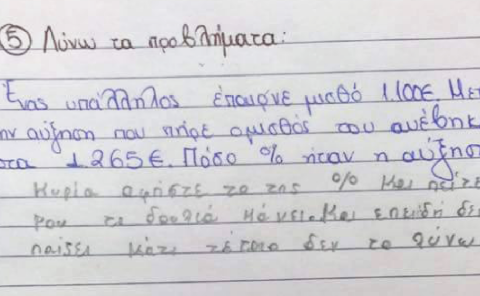 ⑤ Λύνω τα προβλήματα:
Ένας υπάλληλος έπαιρνε μισθό 1.100€. Με
ην αύξηση που πήρε ο μισθός του ανέβηκ
στα 1265€. Πόσο % ήταν η αύξησ
Κυρία αφήστε το της % και πείτε
μου τι δουλειά κάνει. Και επειδή δε
παίζει κάτι τέτοιο δεν το λύνω